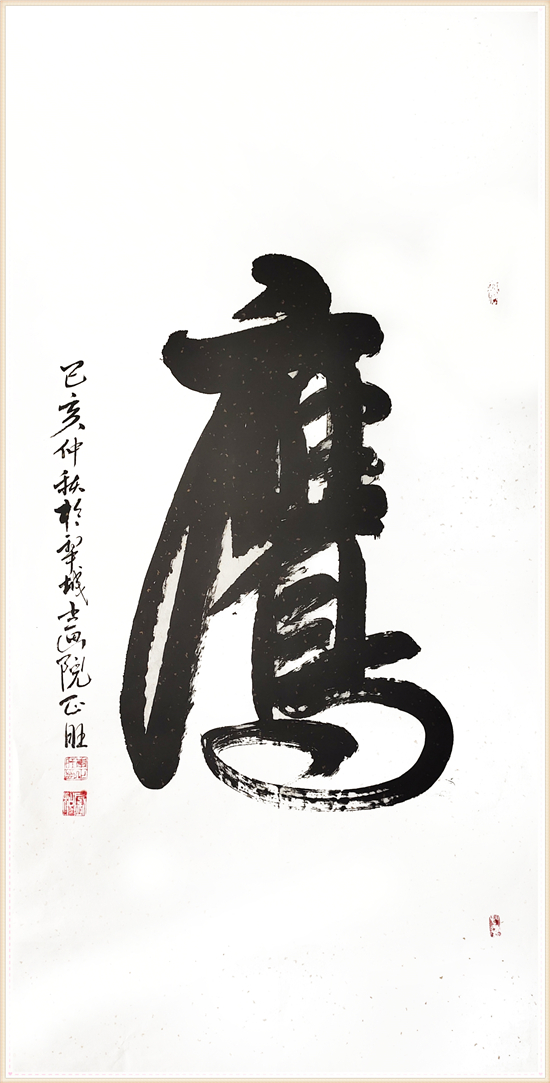 鹰
己亥仲秋於翠城书画院正旺